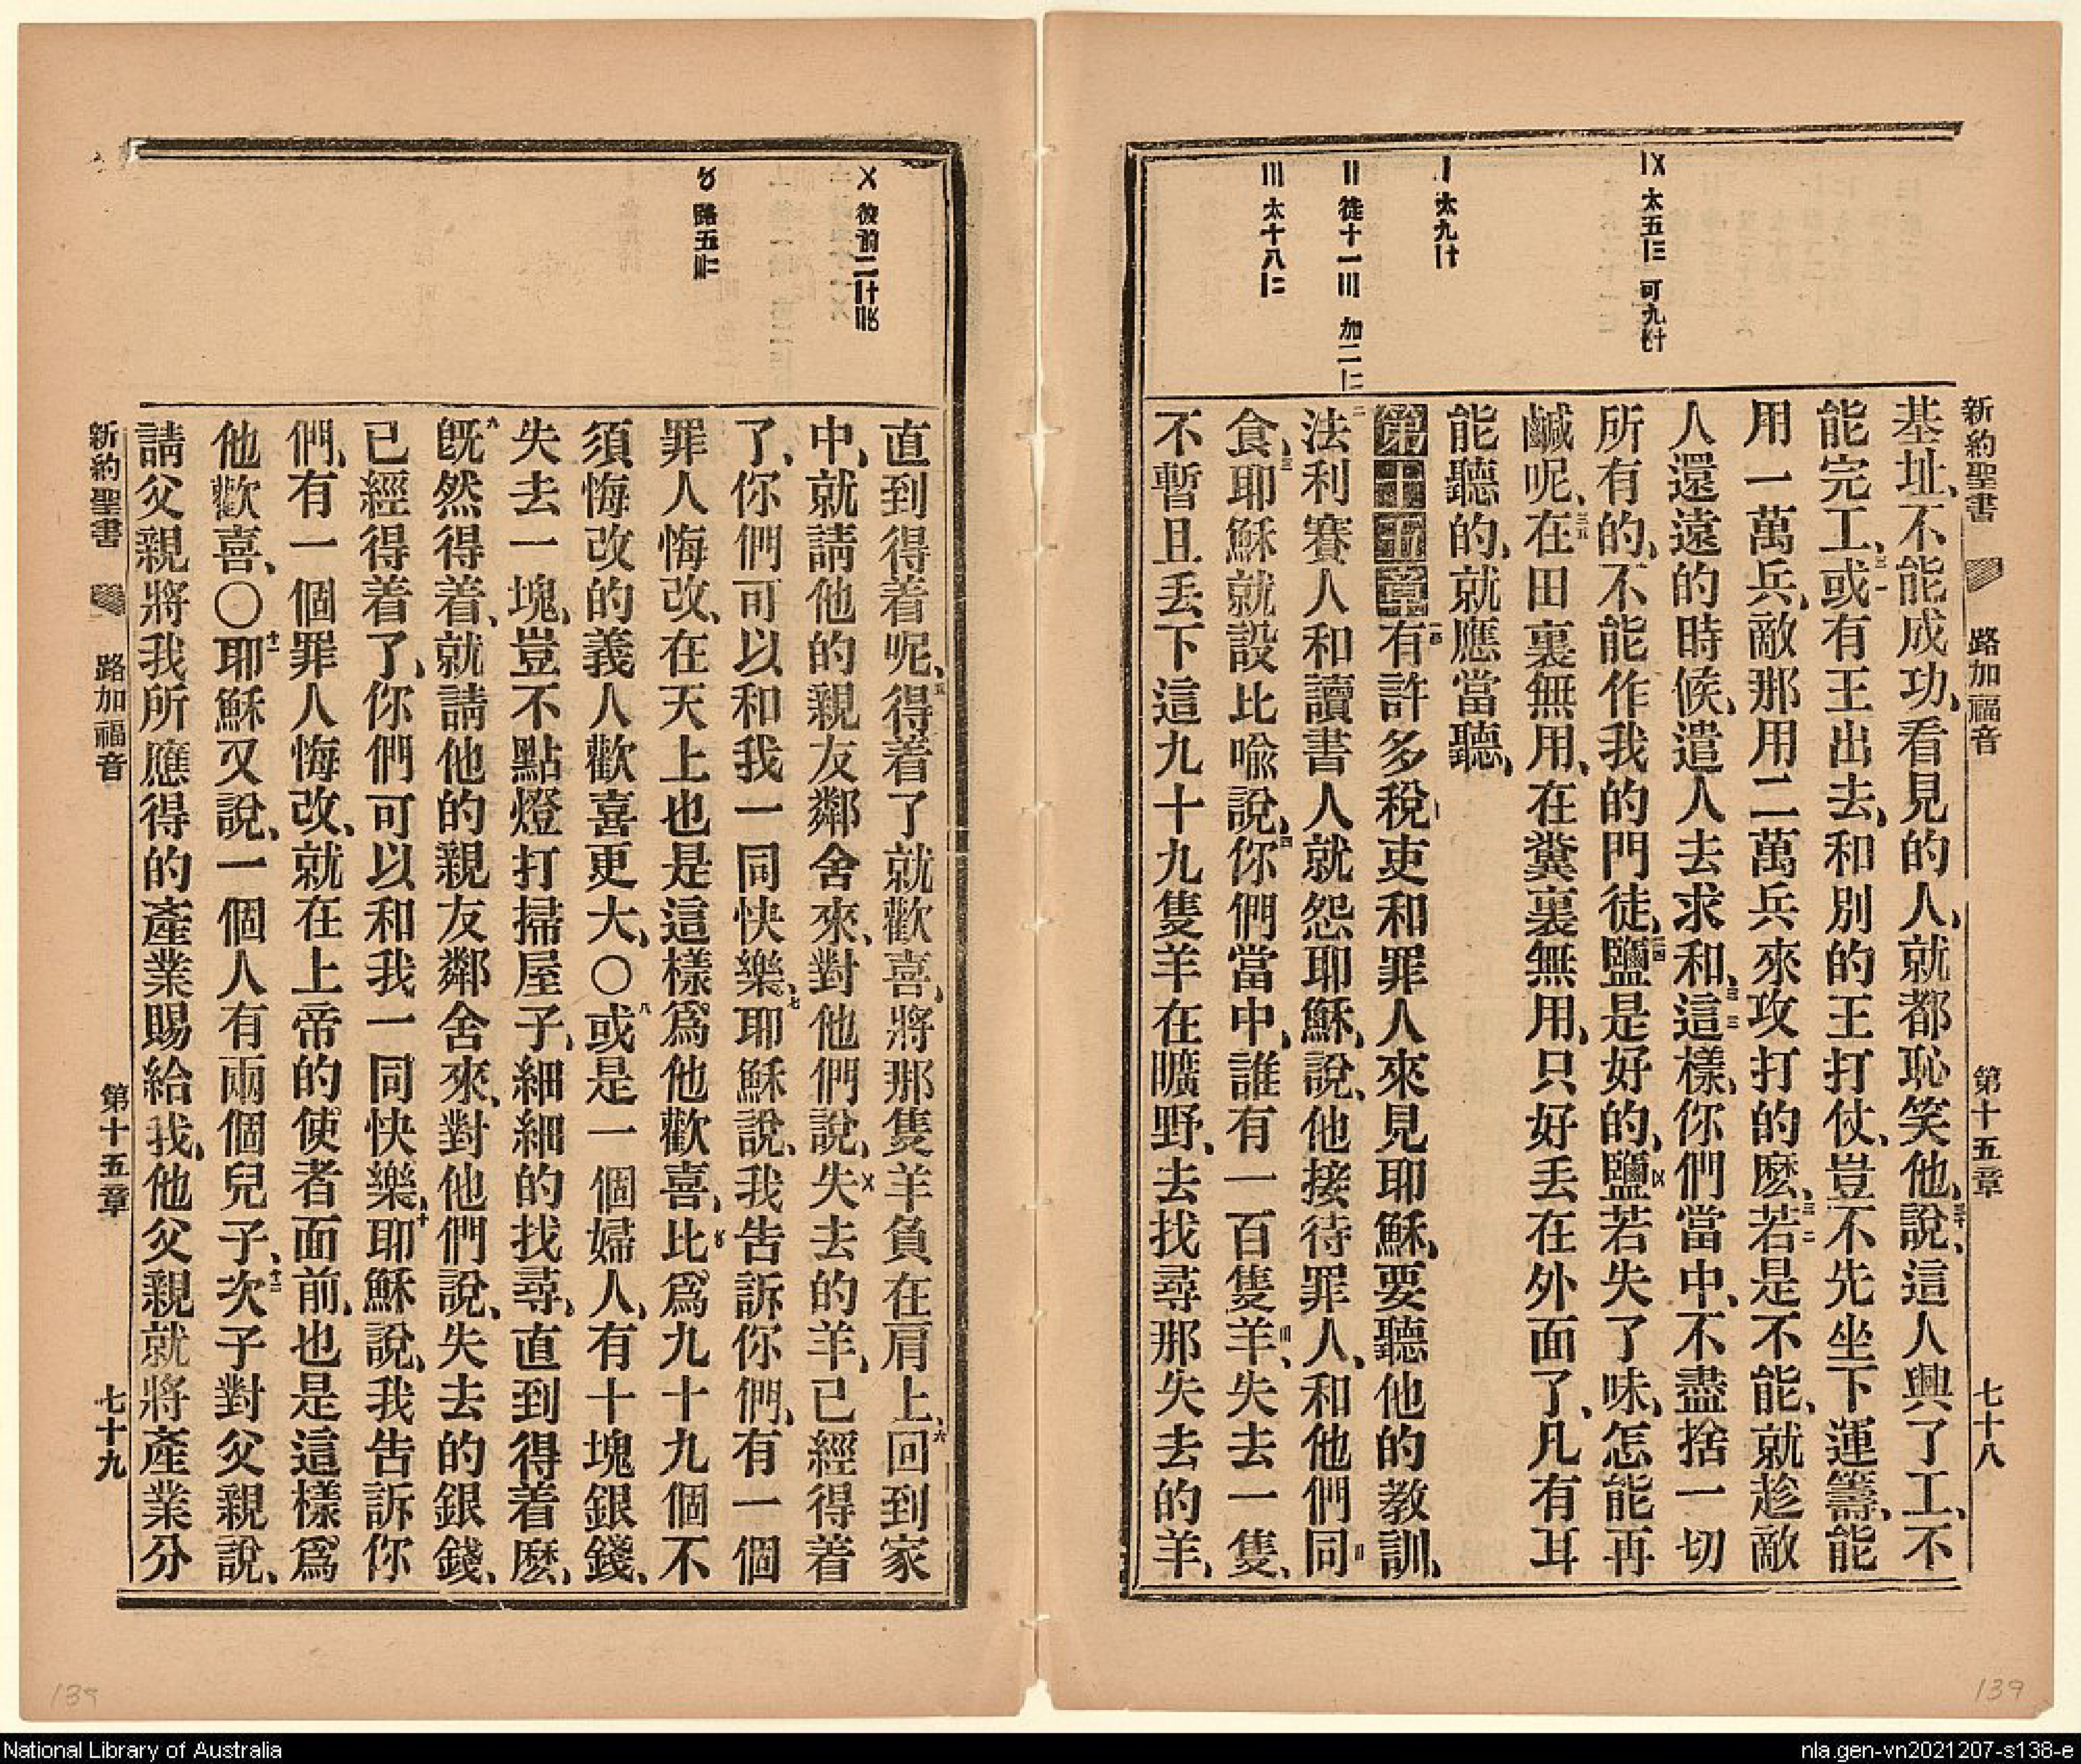 新約聖書
路加福音
第十五章
七十八
〤 太五〣 可九
〡 太九
〢 徒十一〣 加二
〣 太十八
基址、不能成功、看見的人、就都恥笑他、說、這人興了工、不
能完工、或有王出去、和別的王打仗、豈不先坐下運籌、能
用一萬兵、敵那用二萬兵來攻打的麽、若是不能、就趁敵
人還遠的時候、遣人去求和、這樣、你們當中、不盡捨一切
所有的、不能作我的門徒、鹽是好的、鹽若失了味、怎能再
鹹呢、在田裏無用、在糞裏無用、只好丢在外面了、凡有耳
能聽的、就應當聽、
第十五章 有許多稅吏和罪人來見耶穌、要聽他的教訓、
法利賽人和讀書人就怨耶穌、說、他接待罪人、和他們同
食、耶穌就設比喩說、你們當中、誰有一百隻羊、失去一隻、
不暫且丢下這九十九隻羊在曠野、去找尋那失去的羊、
〤 彼前二
〥 路五
直到得着呢、得着了就歡喜、將那隻羊負在肩上、回到家
中、就請他的親友鄰舍來、對他們說、失去的羊、已經得着
了、你們可以和我一同快樂、耶穌說、我告訴你們、有一個
罪人悔改、在天上也是這樣爲他歡喜、比爲九十九個不
須悔改的義人歡喜更大、〇或是一個婦人、有十塊銀錢、
失去一塊、豈不點燈打掃屋子、細細的找尋、直到得着麽、
旣然得着、就請他的親友鄰舍來、對他們說、失去的銀錢、
已經得着了、你們可以和我一同快樂、耶穌說、我告訴你
們、有一個罪人悔改、就在上帝的使者面前、也是這樣爲
他歡喜、〇耶穌又說、一個人有兩個兒子、次子對父親說、
請父親將我所應得的產業賜給我、他父親就將產業分
新約聖書
路加福音
第十五章
七十九
139
139
National Library of Australia
nla.gen-vn2021207-s138-e